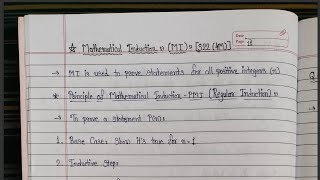 Date
Page 11
* Mathematical Induction :- (MI) :- [S22 (4M)]
→ MI is used to prove statements for all positive integers (n)
* Principle of Mathematical Induction - PMI (Regular Induction) :-
→ To prove a statement P(n):
1. Base Case: Show it's true for n=1
2. Inductive Step: